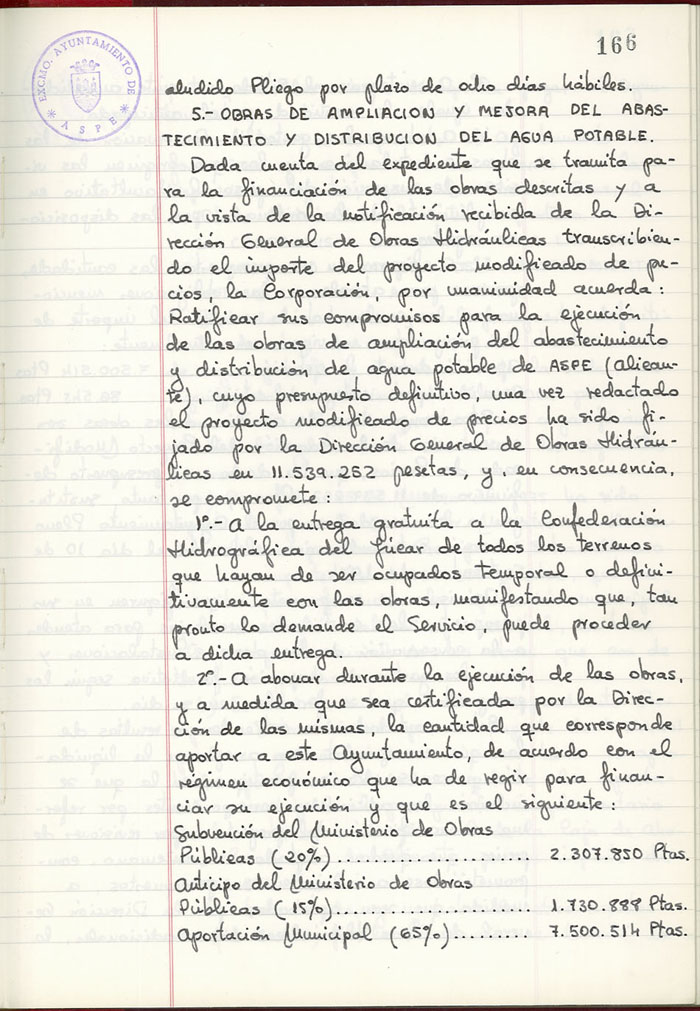 166
EXCMO. AYUNTAMIENTO DE
* ASPE *
aludido Pliego por plazo de ocho días hábiles.
5.- OBRAS DE AMPLIACION Y MEJORA DEL ABAS-
TECIMIENTO Y DISTRIBUCION DEL AGUA POTABLE.
Dada cuenta del expediente que se tramita pa-
ra la financiación de las obras descritas y a
la vista de la notificación recibida de la Di-
rección General de Obras Hidráulicas transcribien-
do el importe del proyecto modificado de pre-
cios, la Corporación, por unanimidad acuerda:
Ratificar sus compromisos para la ejecución
de las obras de ampliación del abastecimiento
y distribución de agua potable de ASPE (Alican-
te), cuyo presupuesto definitivo, una vez redactado
el proyecto modificado de precios ha sido fi-
jado por la Dirección General de Obras Hidráu-
licas en 11.539.252 pesetas, y, en consecuencia,
se compromete:
1º.- A la entrega gratuita a la Confederación
Hidrográfica del Júcar de todos los terrenos
que hayan de ser ocupados temporal o defini-
tivamente con las obras, manifestando que, tan
pronto lo demande el Servicio, puede proceder
a dicha entrega.
2º.- A abonar durante la ejecución de las obras,
y a medida que sea certificada por la Direc-
ción de las mismas, la cantidad que corresponde
aportar a este Ayuntamiento, de acuerdo con el
régimen económico que ha de regir para finan-
ciar su ejecución y que es el siguiente:
Subvención del Ministerio de Obras
Públicas (20%)....................... 2.307.850 Ptas.
Anticipo del Ministerio de Obras
Públicas (15%)....................... 1.730.888 Ptas.
Aportación Municipal (65%)......... 7.500.514 Ptas.